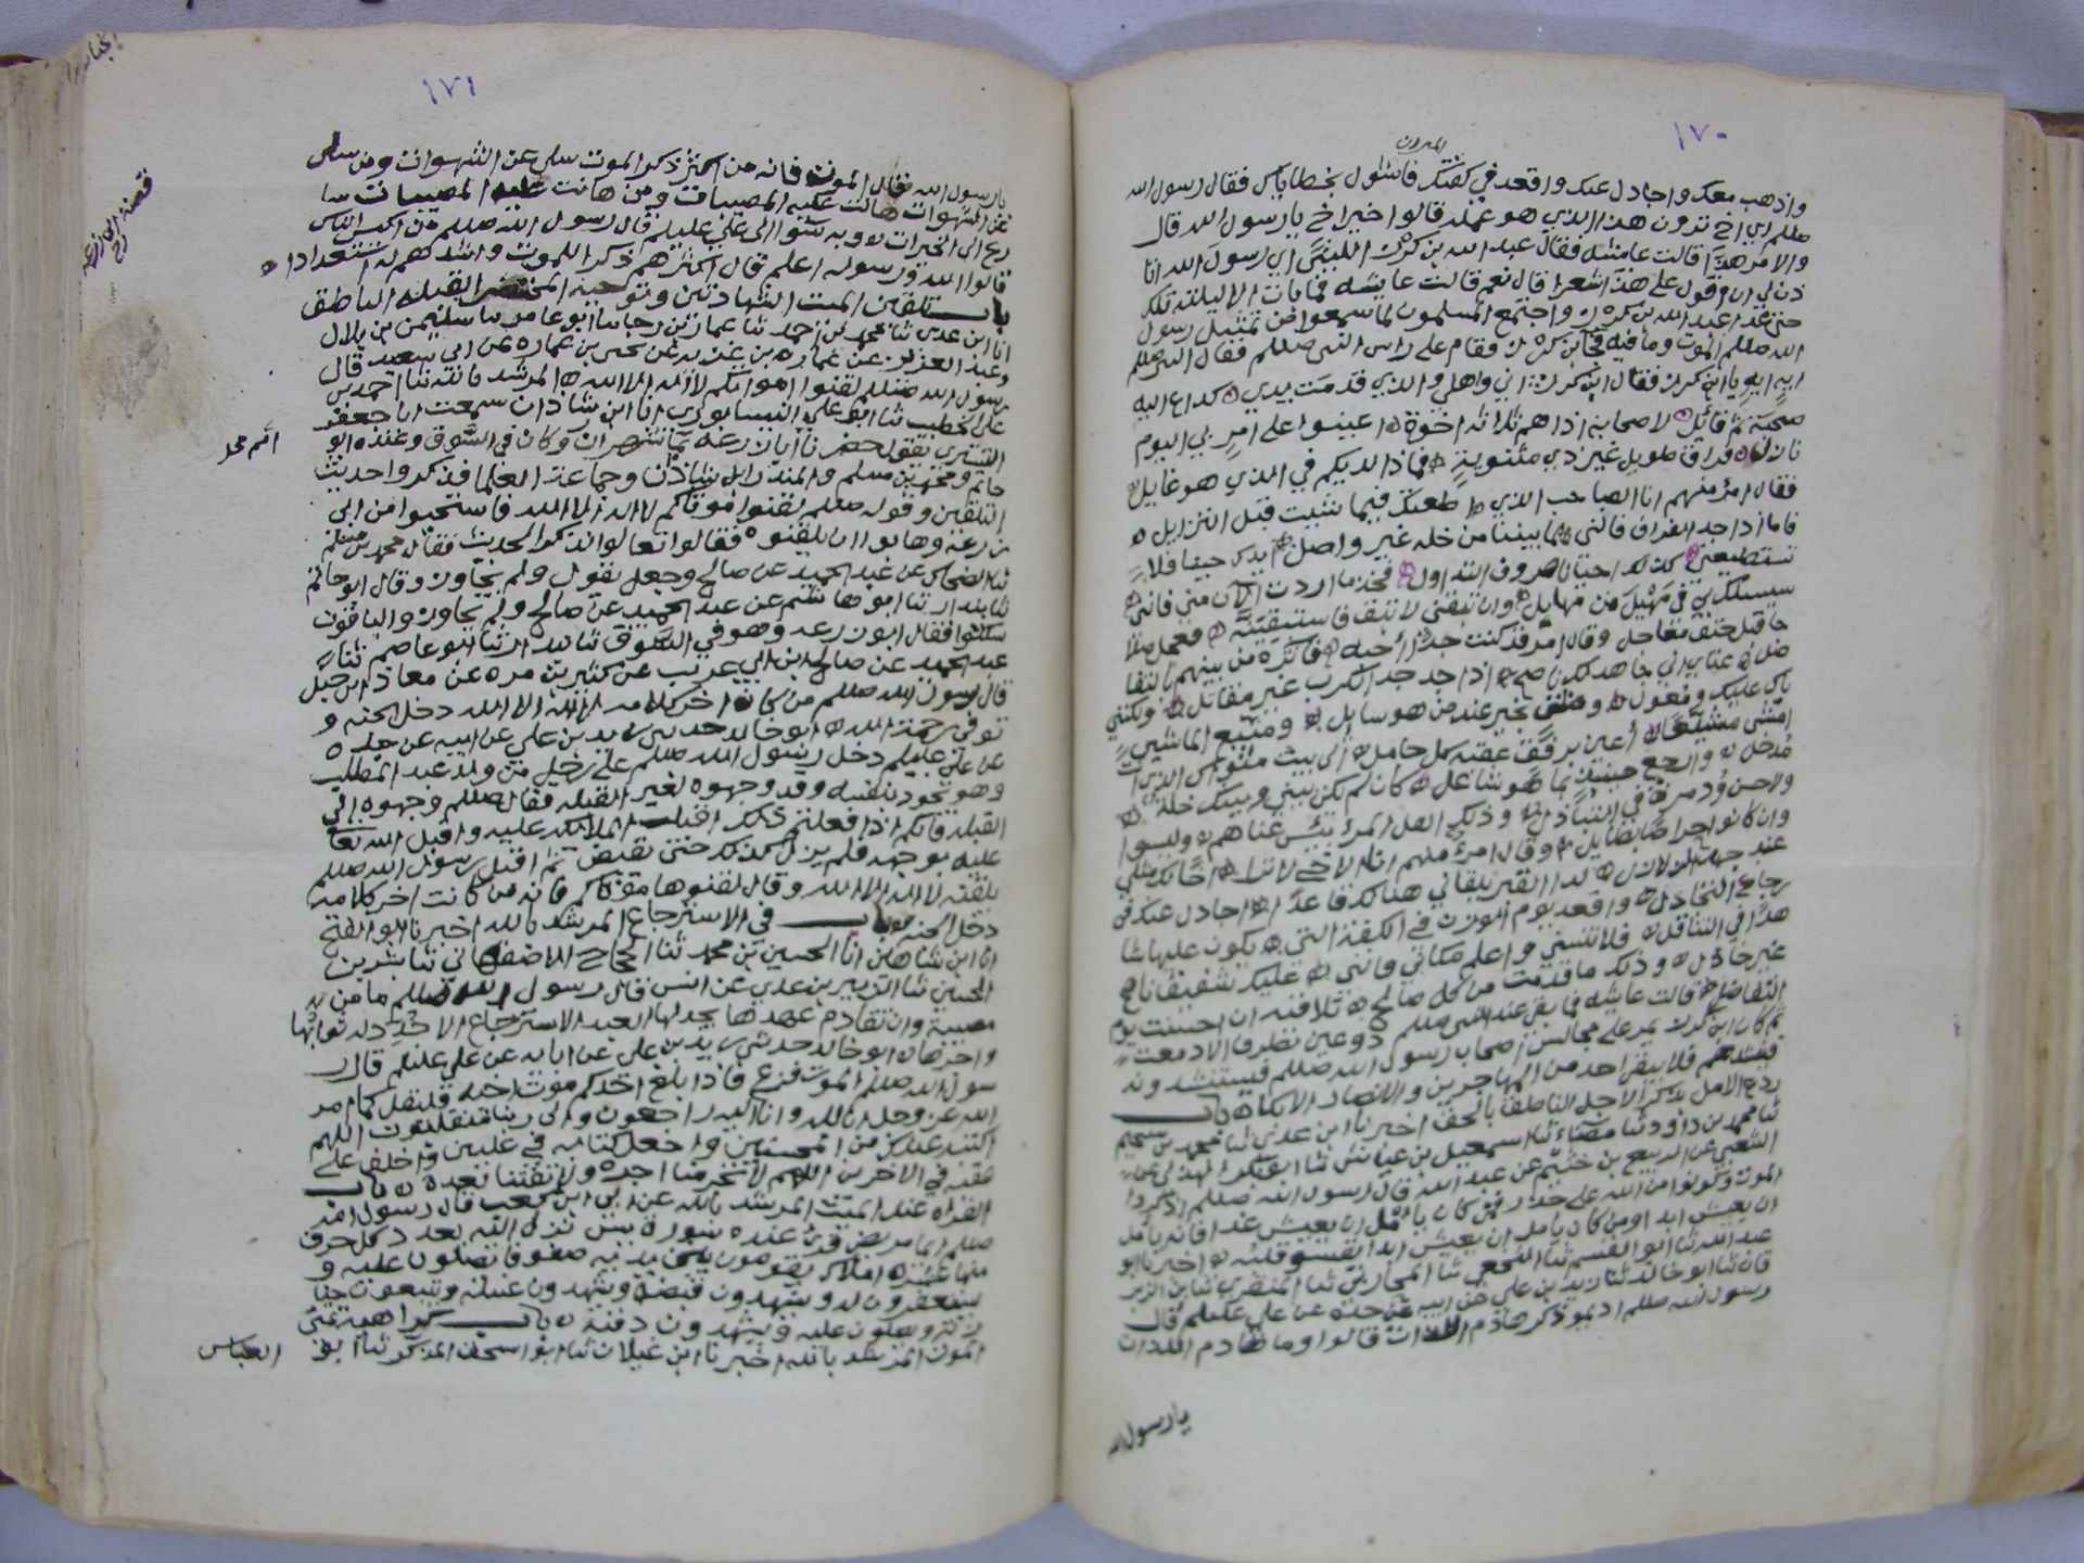 ١٧٠
الميزان
واذهب معك واجادل عنك واقعد في كفتك فاشول بخطاياك فقال رسول الله
صللم اي اخ ترون هذا الذي هو عمله قالوا خير اخ يا رسول الله قال
والامر هكذا قالت عائشه فقال عبد الله بن كرز الليثي اي رسول الله اتا
ذن لي ان اقول على هذا شعرا قال نعم قالت عايشه فما بات الا ليلته تلك
حتى غدا عبد الله بن كرز واجتمع المسلمون لما سمعوا من تمثيل رسول
الله صللم الموت وما فيه فجا ابن كرز فقام على راس النبي صللم فقال النبي صللم
ايه ايه يا ابن كرز فقال ابن كرز اني واهلي والذي قدمت يدي كداع اليه
صحبه ثم قائل لاصحابه اذا هم ثلاثه اخوة اعينوا على امر بي اليوم
نازل فراق طويل غير ذي مثنوية فماذا لديكم في الذي هو غايل
فقال امرؤ منهم انا الصاحب الذي اطعتك فيما شيت قبل التزايل
فاما اذا جد الفراق فانني لما بيننا من خله غير واصل
فخذ ما اردت الان مني فانني
سيسلك بي في مهيل من مهايل وان تبقني لا تبق فاستبقينه فعجل صلا
حا قبل حتف معاجل وقال امرؤ قد كنت جدا احبه فاثره من بينهم بالتفا
ضل غنايي اني جاهد لك ناصح اذا جد جد الكرب غير مقاتل ولكنني
باك عليك ومعول ومثن بخير عند من هو سايل ومتبع الماشين
امشي مشيعا اعين برفق عقبه كل حامل الى بيت مثواك الذي انت
مدخل وارجع حينئذ بما هو شاغل كان لم يكن بيني وبينك خله
ولا حسن ود مرة في التباذل وذلك اهل المرء بئس غناهم وليسوا
وان كانوا حراصا بطايل وقال امرؤ منهم انا الاخ لا ترى اخا لك مثلي
عند جهد الزلازل لدى القبر تلقاني هنالك قاعدا اجادل عنك في
رجاع التجادل واقعد يوم الوزن في الكفة التي يكون عليها
هدا في التثاقل فلا تنسني واعلم مكاني فانني عليك شفيق ناصح
غير خاذل وذلك ما قدمت من كل صالح تلاقيه ان احسنت يوم
التفاضل قالت عايشه فما بقي عند النبي صللم ذو عين تطرف الا دمعت
ثم كان ابن كرز يمر على مجالس اصحاب رسول الله صللم فيستنشدونه
فينشدهم فلا يبقى احد من المهاجرين والانصار الا بكا باب
ردع الامل بذكر الاجل الناطق بالحق اخبرنا ابن عدي
ثنا محمد بن داود ثنا ثنا اسمعيل بن عياش ثنا ابو بكر الهذلي عن
الشعبي عن الربيع بن خثيم عن عبد الله قال رسول الله صللم اذكروا
الموت وكونوا من الله على حذر فمن كان يامل ان يعيش غدا فانه يامل
ان يعيش ابدا ومن كان يامل ان يعيش ابدا يقسو قلبه اخبرنا ابو
عبد الله ثنا ابو القسم ثنا النخعي ثنا المحاربي ثنا المنقري ثنا ابن الزبر
قان ثنا ابو خالد ثنا زيد بن علي عن ابيه عن جده عن علي عليلم قال
رسول الله صللم اديموا ذكر هادم اللذات قالوا وما هادم اللذات
يا رسول الله
١٧١
يا رسول الله فقال الموت فانه من اكثر ذكر الموت سلى عن الشهوات ومن سلى
عن الشهوات هانت عليه المصيبات ومن هانت عليه المصيبات سا
رع الى الخيرات وبه الى علي عليلم قال رسول الله صللم من اكيس الناس
قالوا الله ورسوله اعلم قال اكثرهم ذكرا للموت واشدهم له استعدادا
باب تلقين الميت الشهادتين وتوجيه المحتضر القبله الناطق
انا ابن عدي ثنا محمد بن احمد ثنا عمار بن رجا ثنا ابو عامر ثنا سليمن بن بلال
وعبد العزيز عن عماره بن غزيه عن يحيى بن عماره عن ابي سعيد قال
رسول الله صللم لقنوا امواتكم لا اله الا الله المرشد بالله ثنا احمد بن
علي الخطيب ثنا ابو علي النيسابوري انا ابن شاذان سمعت ابا جعفر
التستري يقول حضرنا ابا زرعه بماشهران وكان في السوق وعنده ابو
حاتم ومحمد بن مسلم والمنذر ابن شاذان وجماعة العلما فذكروا حديث
التلقين وقوله صللم لقنوا موتاكم لا اله الا الله فاستحيوا من ابي
زرعه وهابوا ان يلقنوه فقالوا تعالوا نذكر الحديث فقال محمد بن مسلم
ثنا الضحاك عن عبد الحميد عن صالح وجعل يقول ولم يجاوز وقال ابو حاتم
ثنا بندار ثنا ابو عاصم عن عبد الحميد عن صالح ولم يجاوز والباقون
سكتوا فقال ابو زرعه وهو في السوق ثنا بندار ثنا ابو عاصم ثنا
عبد الحميد عن صالح ابن ابي عريب عن كثير بن مره عن معاذ ابن جبل
قال رسول الله صللم من كان اخر كلامه لا اله الا الله دخل الجنه و
توفي رحمة الله ابو خالد حدثني زيد بن علي عن ابيه عن جده
عن علي عليلم دخل رسول الله صللم على رجل من ولد عبد المطلب
وهو يجود بنفسه وقد وجهوه لغير القبله فقال صللم وجهوه الى
القبله فانكم اذا فعلتم ذلك اقبلت الملائكه عليه واقبل الله تعا
عليه بوجهه فلم يزل كذلك حتى يقبض ثم اقبل رسول الله صللم
يلقنه لا اله الا الله وقال لقنوها موتاكم فانه من كانت اخر كلامه
دخل الجنه باب في الاسترجاع المرشد بالله اخبرنا ابو الفتح
انا ابن شاهين انا الحسين بن محمد ثنا الحجاج الاصفهاني ثنا بشر بن
الحسين ثنا الزبير بن عدي عن انس قال رسول الله صللم ما من
مصيبة وان تقادم عهدها يجدد لها العبد الاسترجاع الا جدد له ثوابها
واجرها ابو خالد حدثني زيد بن علي عن ابايه عن علي عليلم قال ر
سول الله صللم الموت فزع فاذا بلغ احدكم موت اخيه فليقل كما امر
الله عز وجل انا لله وانا اليه راجعون وانا الى ربنا منقلبون اللهم
اكتبه عندك من المحسنين واجعل كتابه في عليين واخلف على
عقبه في الاخرين اللهم لا تحرمنا اجره ولا تفتنا بعده باب
القراه عند الميت المرشد بالله عن ابي ابن كعب قال رسول الله
صللم ايما مريض قرئ عنده سورة يس نزل اليه بعدد كل حرف
منها عشرة املاك يقومون بين يديه صفوفا يصلون عليه و
يستغفرون له ويشهدون قبضه ويشهدون غسله ويتبعون جنا
زته ويصلون عليه ويشهدون دفنه باب كراهية تمني
الموت المرشد بالله اخبرنا ابن غيلان ثنا ابو اسحق المزكي ثنا ابو
العباس
قصة ابي زرعه